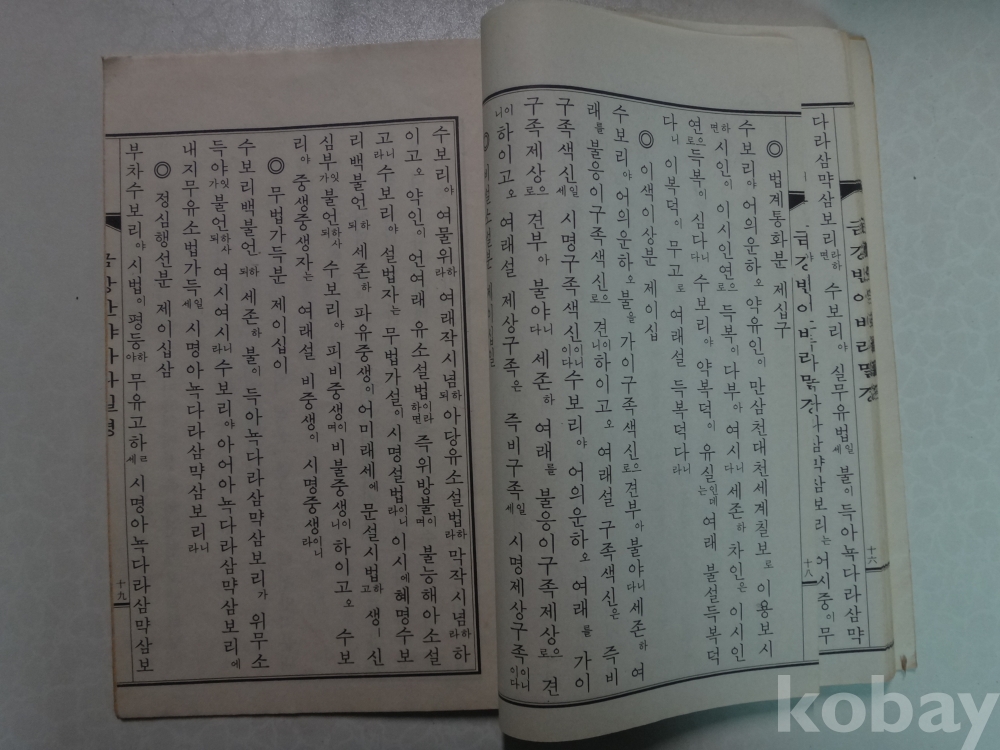 금강반야바라밀경 十六
다라삼먁삼보리라하면 수보리야 실무유법일세 불이 득아뇩다라삼먁
十八
◎ 법계통화분 제십구
수보리야 어의운하오 약유인이 만삼천대천세계칠보로 이용보시
하면 시인이 이시인연으로 득복이 다부아 여시니다 세존하 차인은 이시인
연으로 득복이 심다니다 수보리야 약복덕이 유실인데는 여래 불설득복덕
다니 이복덕이 무고로 여래설 득복덕다니라
◎ 이색이상분 제이십
수보리야 어의운하오 불을 가이구족색신으로 견부아 불야니다 세존하 여
래를 불응이구족색신으로 견이니 하이고오 여래설 구족색신은 즉비
구족색신일세 시명구족색신이니이다 수보리야 어의운하오 여래를 가이
구족제상으로 견부아 불야니다 세존하 여래를 불응이구족제상으로 견
이니 하이고오 여래설 제상구족은 즉비구족일세 시명제상구족이니이다
수보리야 여물위하라 여래작시념하되 아당유소설법하라 막작시념하라 하
이고오 약인이 언여래 유소설법이라하면 즉위방불이며 불능해아소설
고니라 수보리야 설법자는 무법가설이 시명설법이니라 이시에 혜명수보
리백불언하되 세존하 파유중생이 어미래세에 문설시법하고 생ㅣ신
심부잇가 불언하사되 수보리야 피비중생이며 비불중생이니 하이고오 수보
리야 중생중생자는 여래설 비중생이 시명중생이니라
◎ 무법가득분 제이십이
수보리백불언하되 세존하 불이 득아뇩다라삼먁삼보리가 위무소
득야잇가 불언하사되 여시여시니라 수보리야 아어아뇩다라삼먁삼보리에
내지무유소법가득일세 시명아뇩다라삼먁삼보리니라
◎ 정심행선분 제이십삼
부차수보리야 시법이 평등하야 무유고하ㄹ세 시명아뇩다라삼먁삼보
十九
kobay